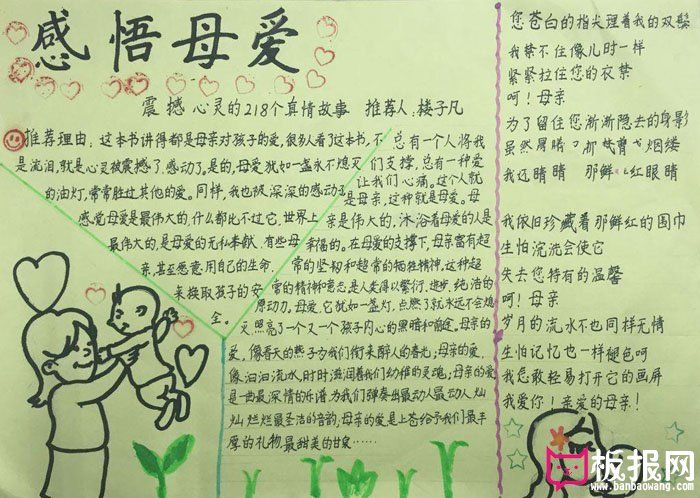 感悟母爱
震撼心灵的218个真情故事 推荐人:楼子凡
推荐理由:这本书讲得都是母亲对孩子的爱,很多人看了这本书,不
是流泪,就是心灵被震撼了.感动了。是的,母爱犹如一盏永不熄灭
的油灯,常常胜过其他的爱。同样,我也被深深的感动了
感觉母爱是最伟大的,什么都比不过它,世界上
最伟大的,是母爱的无私奉献,有些母
亲,甚至愿意用自己的生命
来换取孩子的安
全。
总有一个人将我
们支撑,总有一种爱
让我们心痛。这个人就
是母亲,这种就是母爱。母
亲是伟大的,沐浴着母爱的人是
幸福的。在母爱的支撑下,母亲富有超
常的坚韧和超常的牺牲精神,这种超
常的精神意志是人类得以繁衍、进步、纯洁的
原动力。母爱,它犹如一盏灯,点燃了就永远不会熄
灭,照亮了一个又一个孩子内心的黑暗和前途。母亲的
爱,像春天的燕子为我们衔来醉人的春光;母亲的爱,
像汩汩流水,时时滋润着我们幼稚的灵魂;母亲的爱
是一曲最深情的乐谱为我们弹奏出最动人最动人灿
灿烂烂最圣洁的音韵,母亲的爱是上苍给予我们最丰
厚的礼物最甜美的甘泉……
您苍白的指尖理着我的双鬓
我禁不住像儿时一样
紧紧拉住您的衣禁
呵!母亲
为了留住您渐渐隐去的身影
虽然晨晴
我还晴晴 那鲜红眼晴
我依旧珍藏着那鲜红的围巾
生怕浣洗会使它
失去您特有的温馨
呵!母亲
岁月的流水不也同样无情
生怕记忆也一样褪色呵
我怎敢轻易打开它的画屏
我爱你!亲爱的母亲!
板报网
www.banbaowang.com